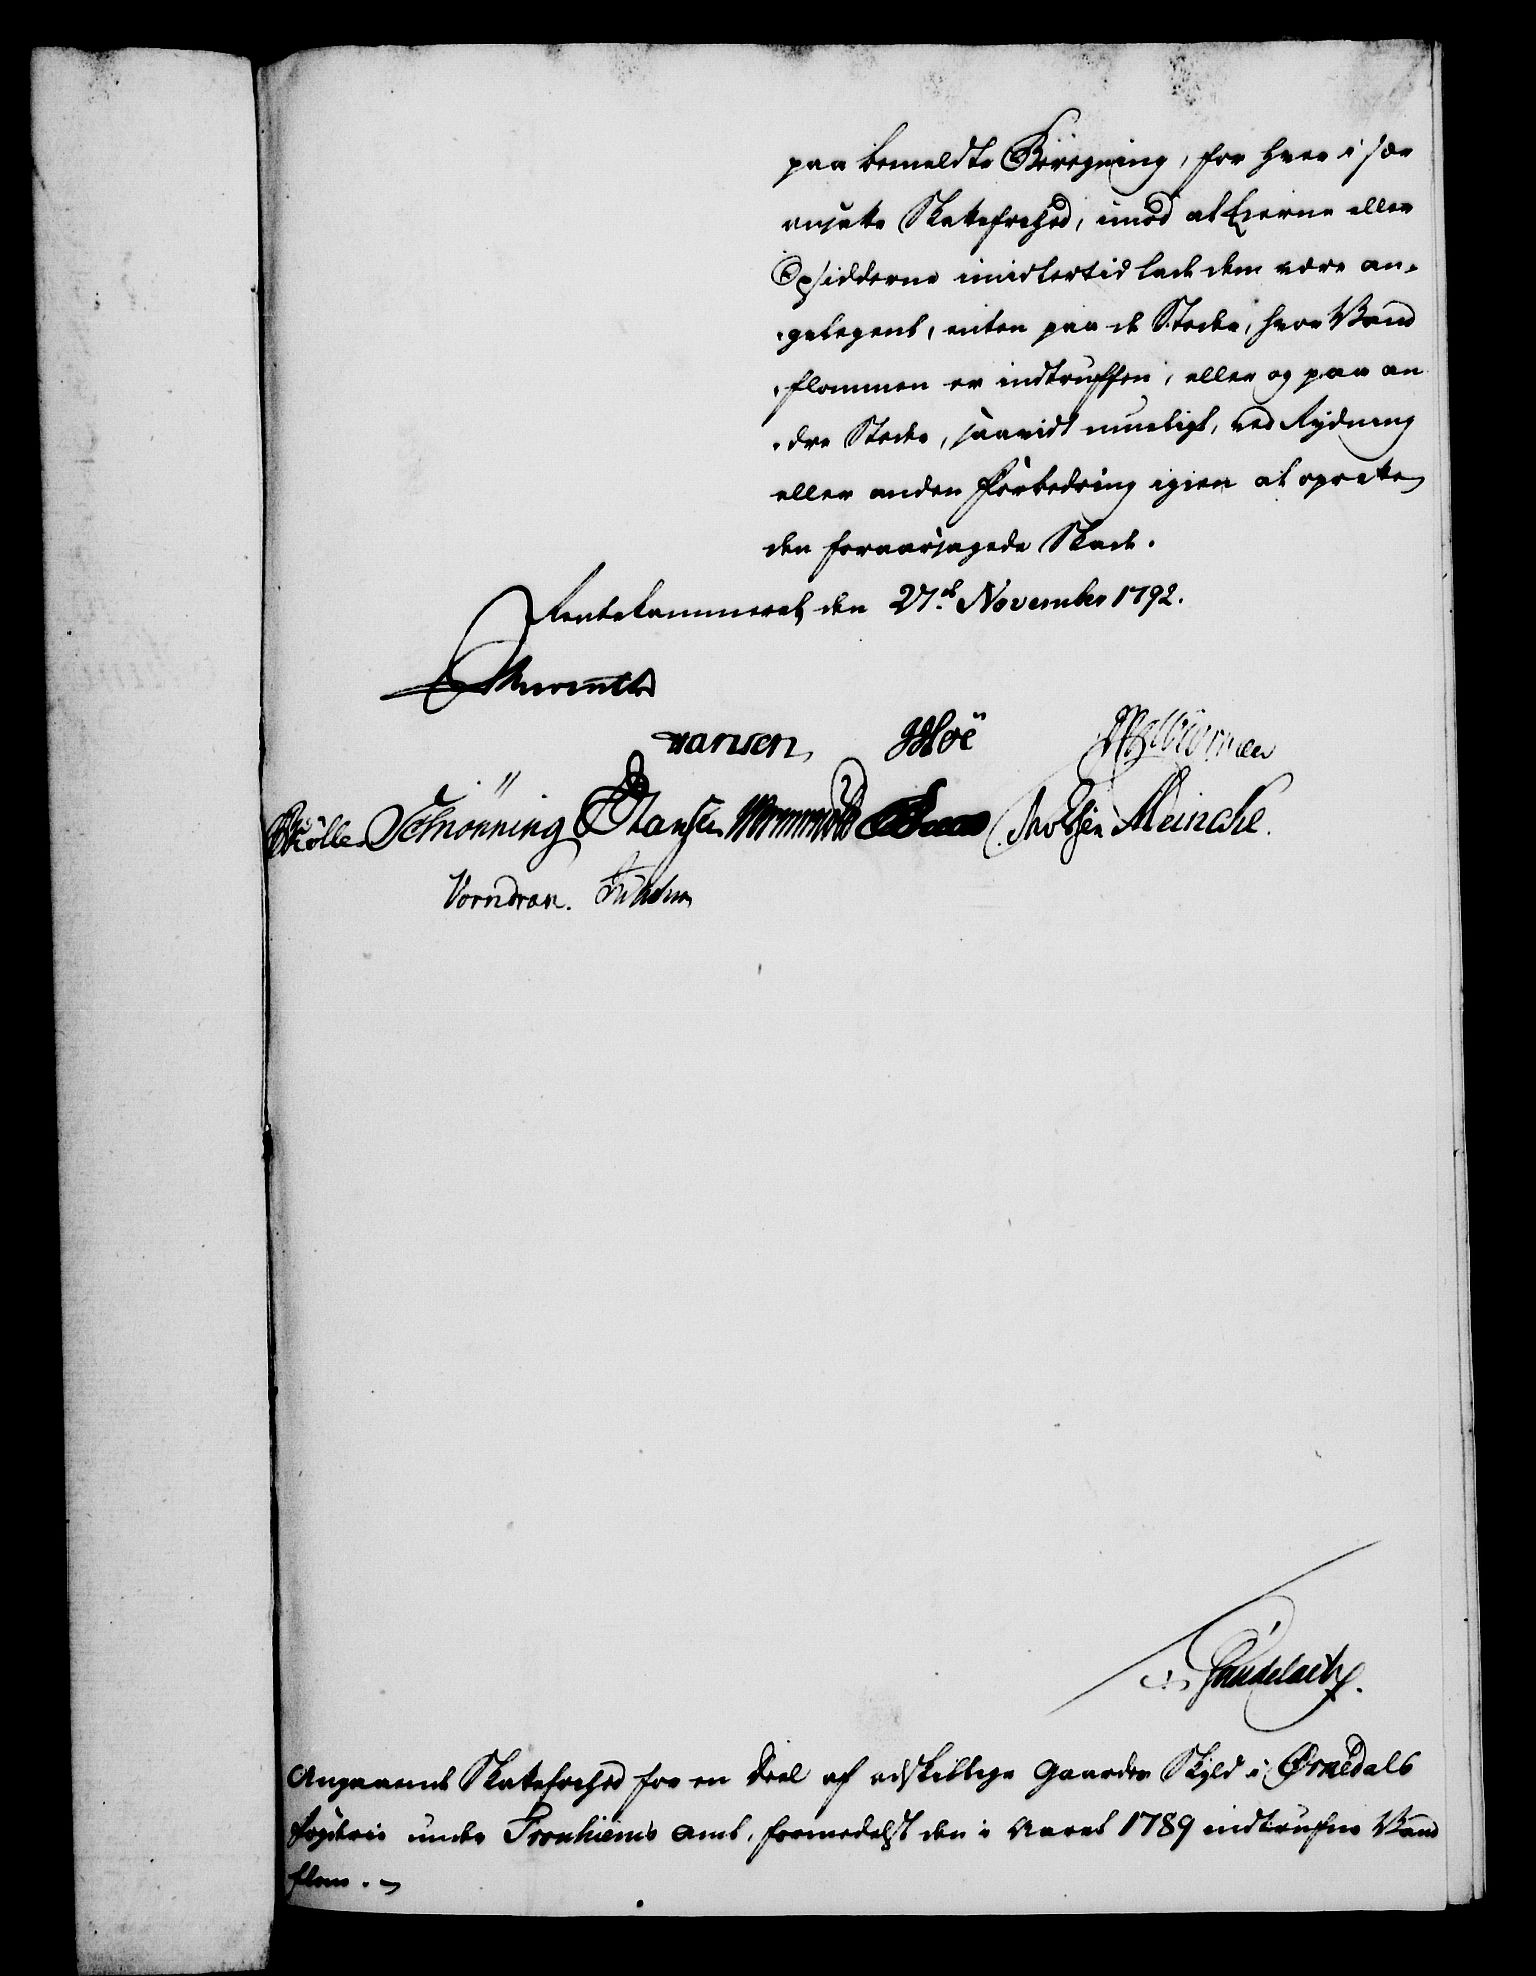 paa bemeldte Beregning, for hver i sær
ansatte Skattefrihed, imod at Eierne eller
Opsidderne imidlertid lade dem være an-
-gelegent, enten paa de Steder, hvor Vand
-flommen er indtruffen, eller og paa an
-dre Steder, saavidt mueligt, ved Rydning
eller anden Forbedring igien at oprette
den foraarsagede Skade.
Rentekammeret den 27de November 1792.
Hansen Hoë
Schiønning Hansen Meincke.
Vorndran.
Angaaende Skattefrihed for en Deel af adskillige Gaarders Skyld i Ørkedals
Fogderie under Tronhiems Amt, formedelst den i Aaret 1789 indtrufne Vand
flom.